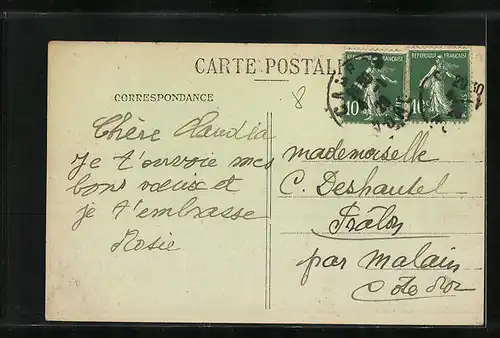 CARTE POSTALE
CORRESPONDANCE
8
REPUBLIQUE FRANÇAISE
10
REPUBLIQUE FRANÇAISE
10
Chère Claudia
Je t'envoie mes
bons vœux et
je t'embrasse
Rosie
mademoiselle
C. Deshautel
Prâlon
par Malain
Côte d'or